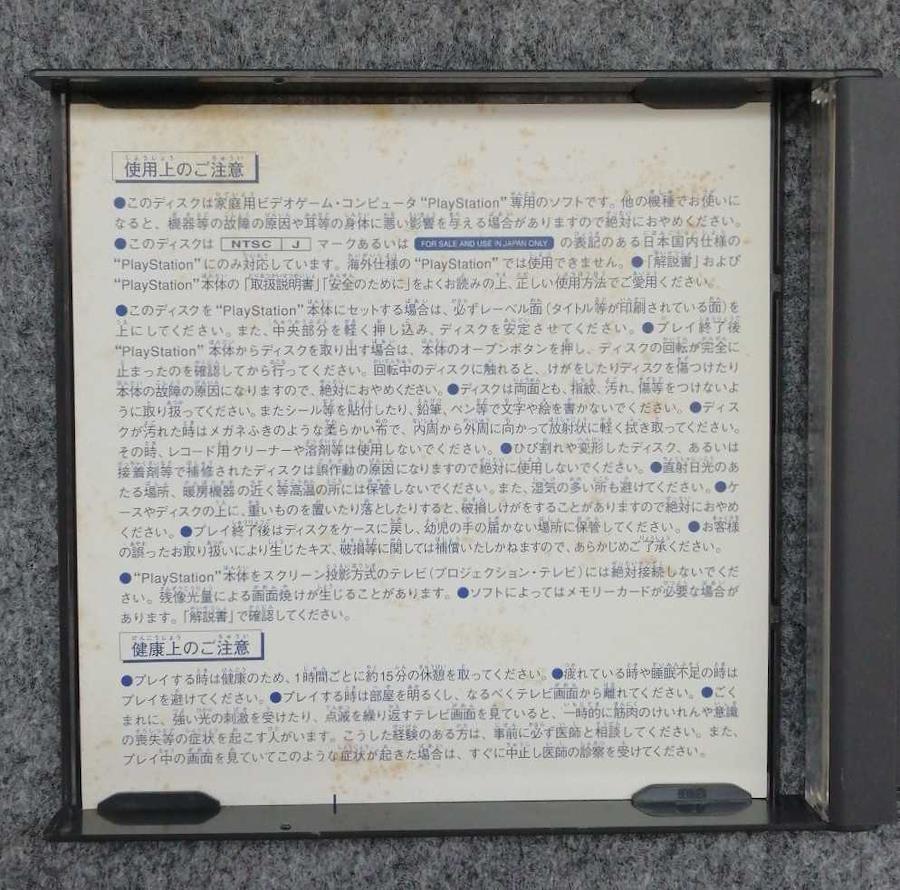 使用上のご注意
●このディスクは家庭用ビデオゲーム・コンピュータ“PlayStation”専用のソフトです。他の機種でお使いに
なると、機器等の故障の原因や耳等の身体に悪い影響を与える場合がありますので絶対におやめください。
●このディスクは NTSC J マークあるいは FOR SALE AND USE IN JAPAN ONLY の表記のある日本国内仕様の
“PlayStation”にのみ対応しています。海外仕様の“PlayStation”では使用できません。●「解説書」および
“PlayStation”本体の「取扱説明書」「安全のために」をよくお読みの上、正しい使用方法でご愛用ください。
●このディスクを“PlayStation”本体にセットする場合は、必ずレーベル面（タイトル等が印刷されている面）を
上にしてください。また、中央部分を軽く押し込み、ディスクを安定させてください。●プレイ終了後
“PlayStation”本体からディスクを取り出す場合は、本体のオープンボタンを押し、ディスクの回転が完全に
止まったのを確認してから行ってください。回転中のディスクに触れると、けがをしたりディスクを傷つけたり
本体の故障の原因になりますので、絶対におやめください。●ディスクは両面とも、指紋、汚れ、傷等をつけないよ
うに取り扱ってください。またシール等を貼付したり、鉛筆、ペン等で文字や絵を書かないでください。●ディス
クが汚れた時はメガネふきのような柔らかい布で、内周から外周に向かって放射状に軽く拭き取ってください。
その時、レコード用クリーナーや溶剤等は使用しないでください。●ひび割れや変形したディスク、あるいは
接着剤等で補修されたディスクは誤作動の原因になりますので絶対に使用しないでください。●直射日光のあ
たる場所、暖房機器の近く等高温の所には保管しないでください。また、湿気の多い所も避けてください。●ケ
ースやディスクの上に、重いものを置いたり落としたりすると、破損しけがをすることがありますので絶対におやめ
ください。●プレイ終了後はディスクをケースに戻し、幼児の手の届かない場所に保管してください。●お客様
の誤ったお取り扱いにより生じたキズ、破損等に関しては補償いたしかねますので、あらかじめご了承ください。
●“PlayStation”本体をスクリーン投影方式のテレビ（プロジェクション・テレビ）には絶対接続しないでくだ
さい。残像光量による画面焼けが生じることがあります。●ソフトによってはメモリーカードが必要な場合が
あります。「解説書」で確認してください。
健康上のご注意
●プレイする時は健康のため、1時間ごとに約15分の休憩を取ってください。●疲れている時や睡眠不足の時は
プレイを避けてください。●プレイする時は部屋を明るくし、なるべくテレビ画面から離れてください。●ごく
まれに、強い光の刺激を受けたり、点滅を繰り返すテレビ画面を見ていると、一時的に筋肉のけいれんや意識
の喪失等の症状を起こす人がいます。こうした経験のある方は、事前に必ず医師と相談してください。また、
プレイ中の画面を見ていてこのような症状が起きた場合は、すぐに中止し医師の診察を受けてください。